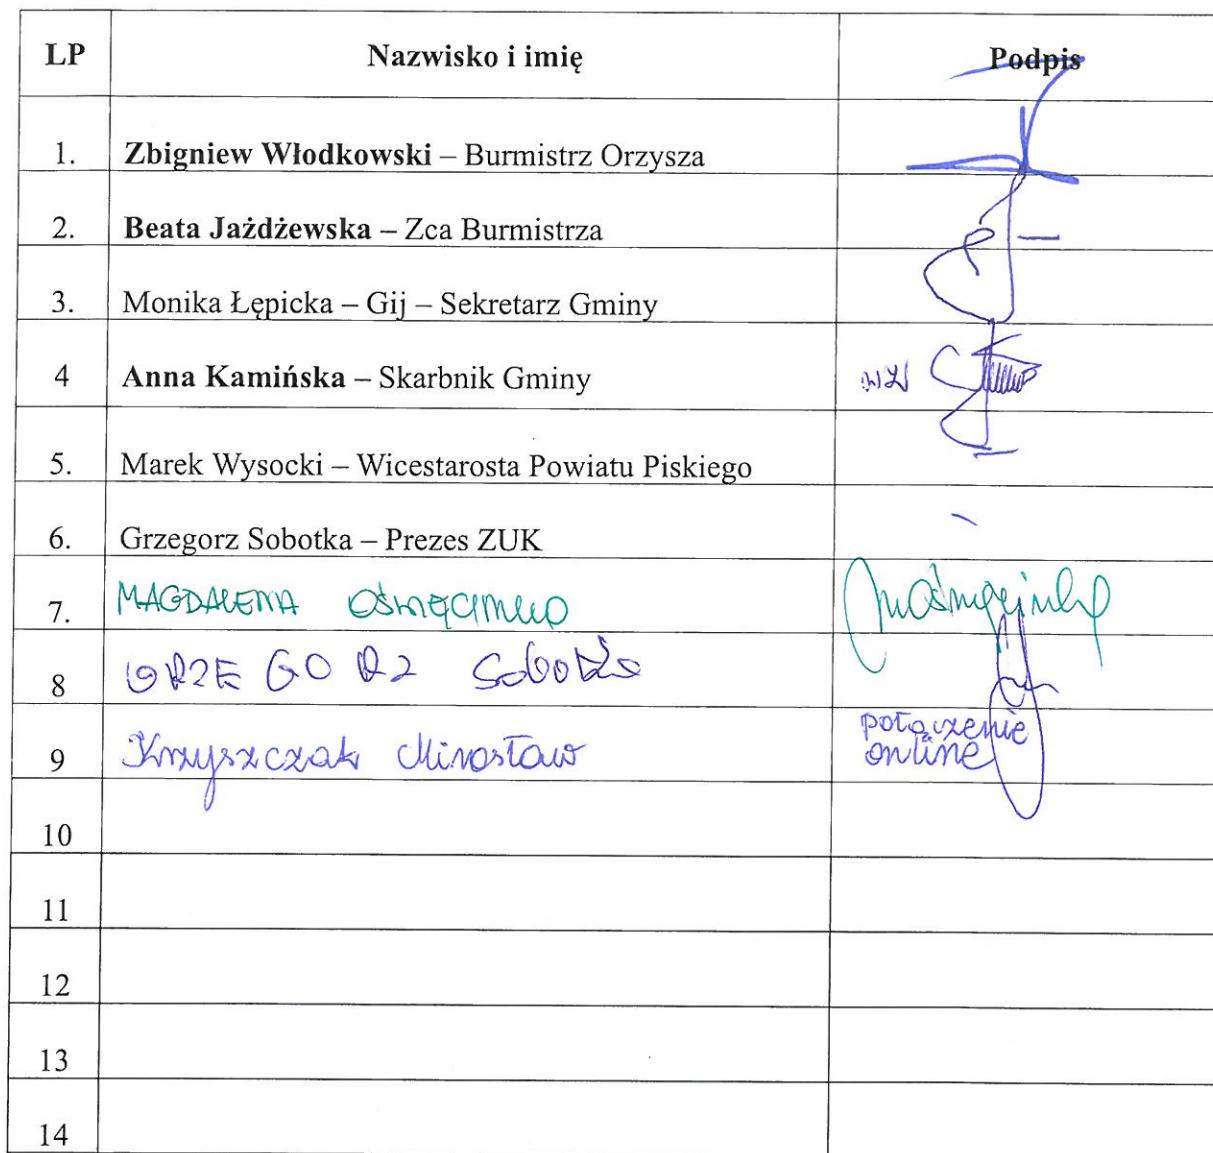 LP Nazwisko i imię Podpis
1. Zbigniew Włodkowski – Burmistrz Orzysza
2. Beata Jażdżewska – Zca Burmistrza
3. Monika Łępicka – Gij – Sekretarz Gminy
4 Anna Kamińska – Skarbnik Gminy
5. Marek Wysocki – Wicestarosta Powiatu Piskiego
6. Grzegorz Sobotka – Prezes ZUK
7. MAGDALENA
8 GRZEGORZ Sobotka
9 Krzyszczak Mirosław połączenie
online
10
11
12
13
14